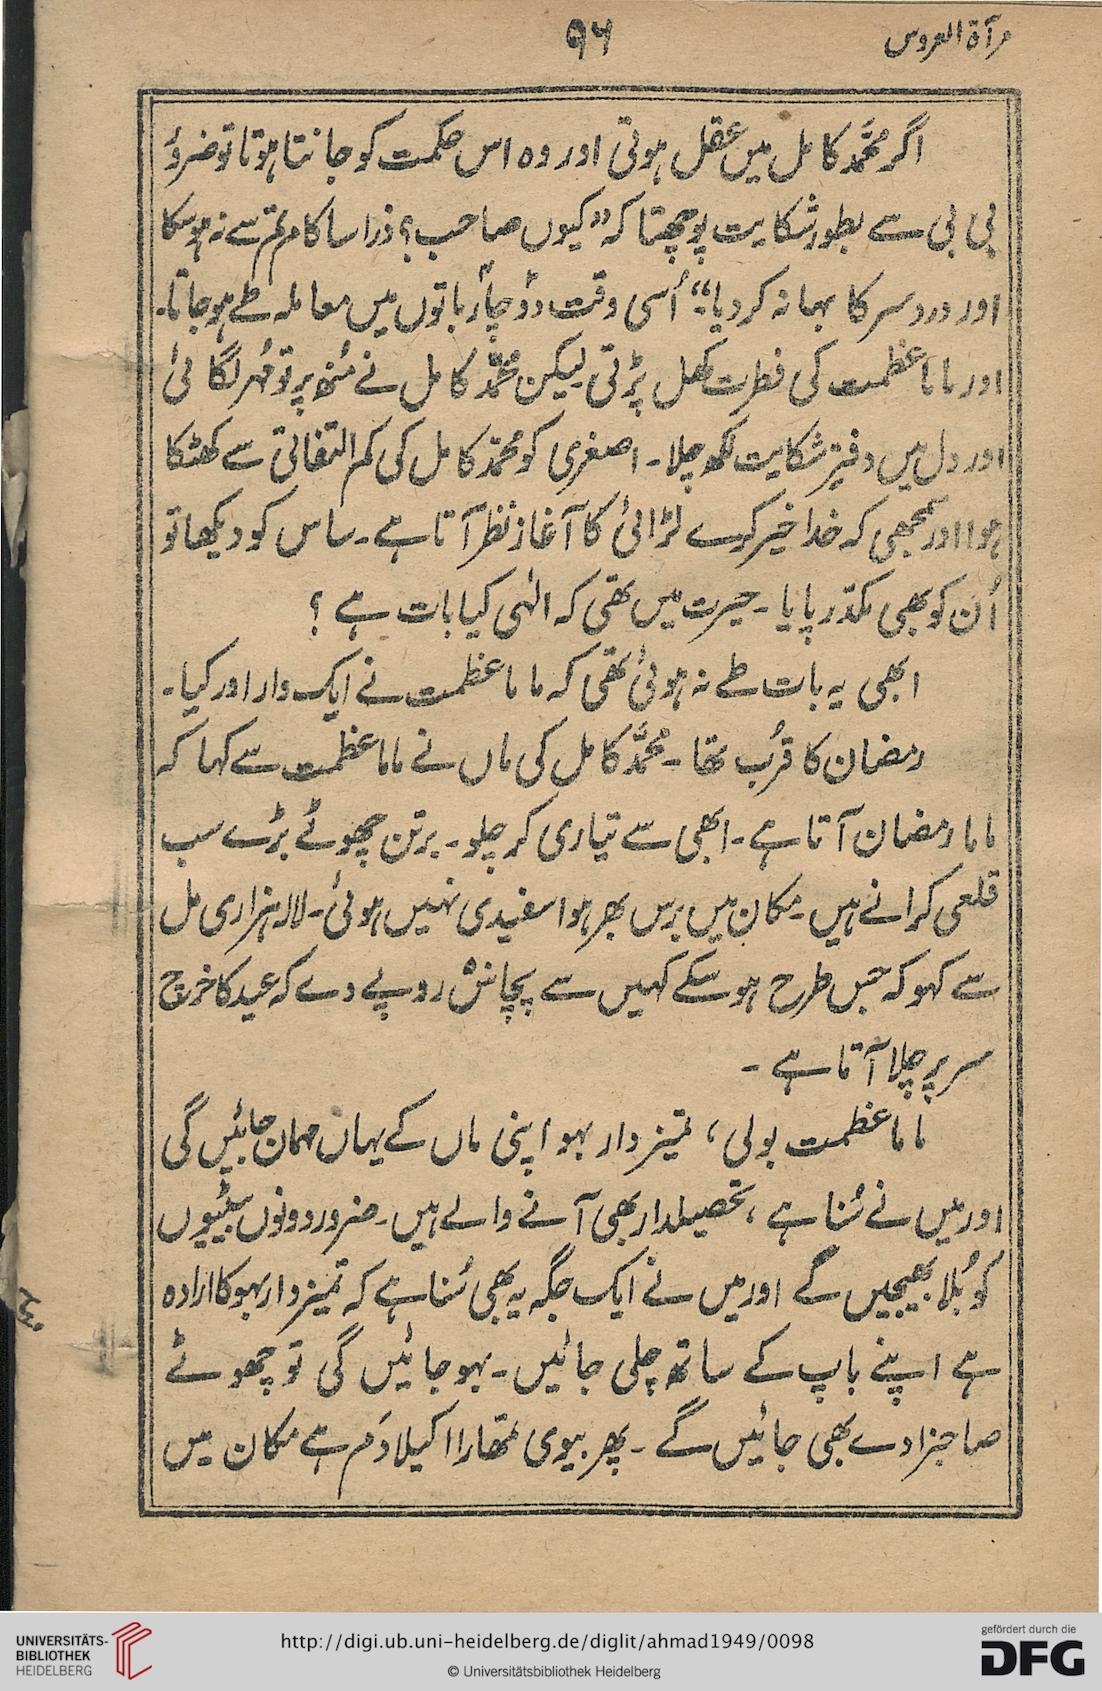 مرآۃ العروس
۹۶
اگر محمّد کامل میں عقل ہوتی اور وہ اس حکمت کو جانتا ہوتا تو ضروُ
بی بی سے بطور شکایت پوچھتا کہ "کیوں صاحب؟ ذرا سا کام تم سے نہ ہوسکا
اور دردسر کا بہانہ کر دیا۔" اُسی وقت دوؔ چارؔ باتوں میں معاملہ طے ہو جاتا۔
اور ماما عظمت کی فطرت کھل پڑتی لیکن محمّد کامل نے مُنھ پر تو مُہر لگا لی
اور دل میں دفترِ شکایت لکھ چلا۔ اصغری کو محمّد کامل کی کم التفاتی سے کھٹکا
ہوا اور سمجھی کہ خدا خیر کرے لڑائی کا آغاز نظر آتا ہے۔ ساس کو دیکھا تو
اُن کو بھی مکدّر پایا۔ حیرت میں تھی کہ الٰہی کیا بات ہے ؟
ابھی یہ بات طے نہ ہوئی تھی کہ ماما عظمت نے ایک وار اور کیا۔
رمضان کا قرُب تھا۔ محمّد کامل کی ماں نے ماما عظمت سے کہا کہ
ماما رمضان آتا ہے۔ ابھی سے تیاری کر چلو۔ برتن چھوٹے بڑے سب
قلعی کرانے ہیں۔ مکان میں برس بھر ہوا سفیدی نہیں ہوئی۔ لالہ ہزاری مل
سے کہو کہ جس طرح ہو سکے کہیں سے پچاسؔ روپے دے کہ عید کا خرچ
سر پر چلا آتا ہے ۔
ماما عظمت بولی ، تمیز دار بہو اپنی ماں کے یہاں مہمان جائیں گی
اور میں نے سُنا ہے ، تحصیلدار بھی آنے والے ہیں۔ ضرور دونوں بیٹیوں
کو بُلا بھیجیں گے اور میں نے ایک جگہ یہ بھی سُنا ہے کہ تمیز دار بہو کا ارادہ
ہے اپنے باپ کے ساتھ چلی جائیں۔ بہو جائیں گی تو چھوٹے
صاحبزادے بھی جائیں گے ۔ پھر بیوی تمھارا اکیلا دَم ہے مکان میں
UNIVERSITÄTS-
BIBLIOTHEK
HEIDELBERG
http://digi.ub.uni-heidelberg.de/diglit/ahmad1949/0098
© Universitätsbibliothek Heidelberg
gefördert durch die
DFG